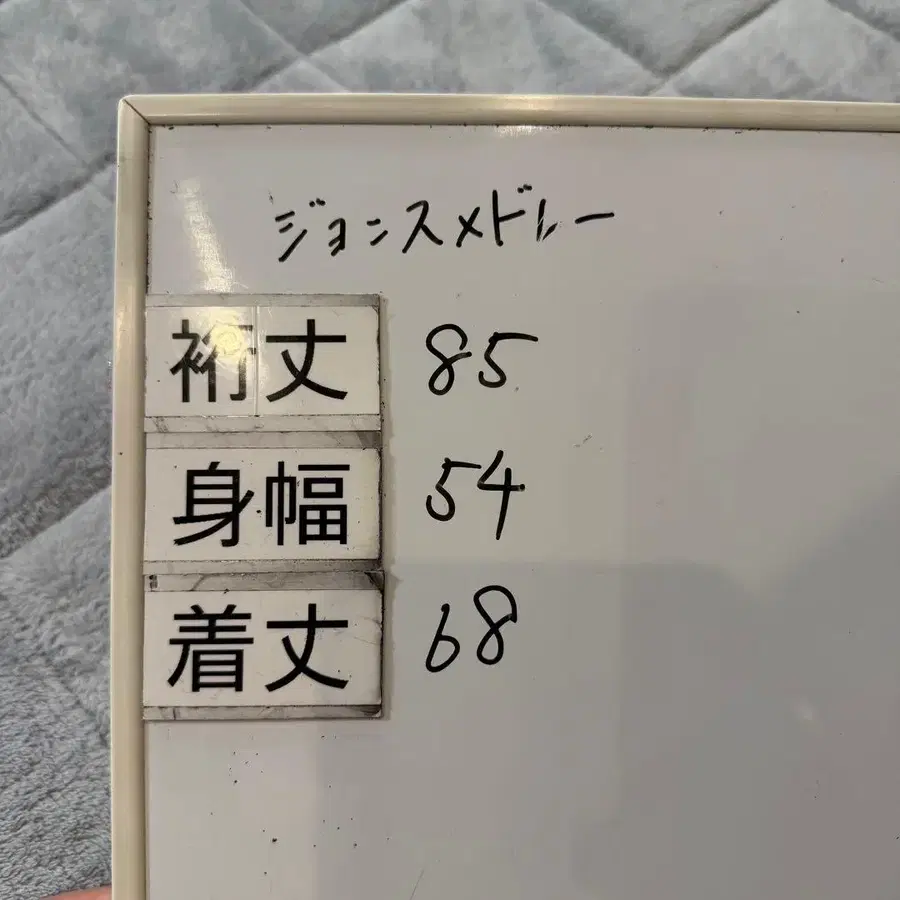 ジョンスメドレー
裄丈 85
身幅 54
着丈 68